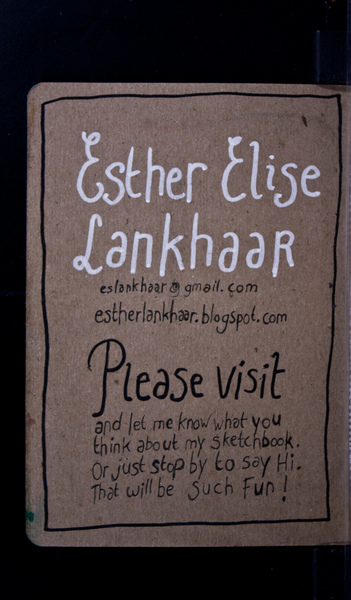 Esther Elise
Lankhaar
eslankhaar@gmail.com
estherlankhaar.blogspot.com
Please visit
and let me know what you
think about my sketchbook.
Or just stop by to say Hi.
That will be such fun!